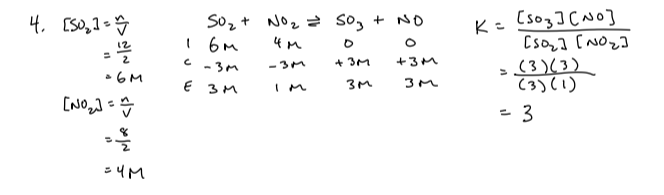 4. [SO₂] = n/V
= 12/2
= 6M
[NO₂] = n/V
= 8/2
= 4M
SO₂ + NO₂ ⇌ SO₃ + NO
I 6M 4M 0 0
C -3M -3M +3M +3M
E 3M 1M 3M 3M
K = [SO₃][NO]/[SO₂][NO₂]
= (3)(3)/(3)(1)
= 3